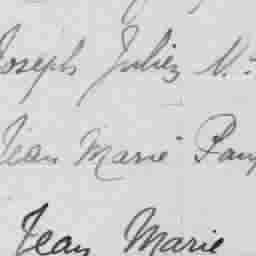 Joseph Julien
Jean Marie
Jean Marie